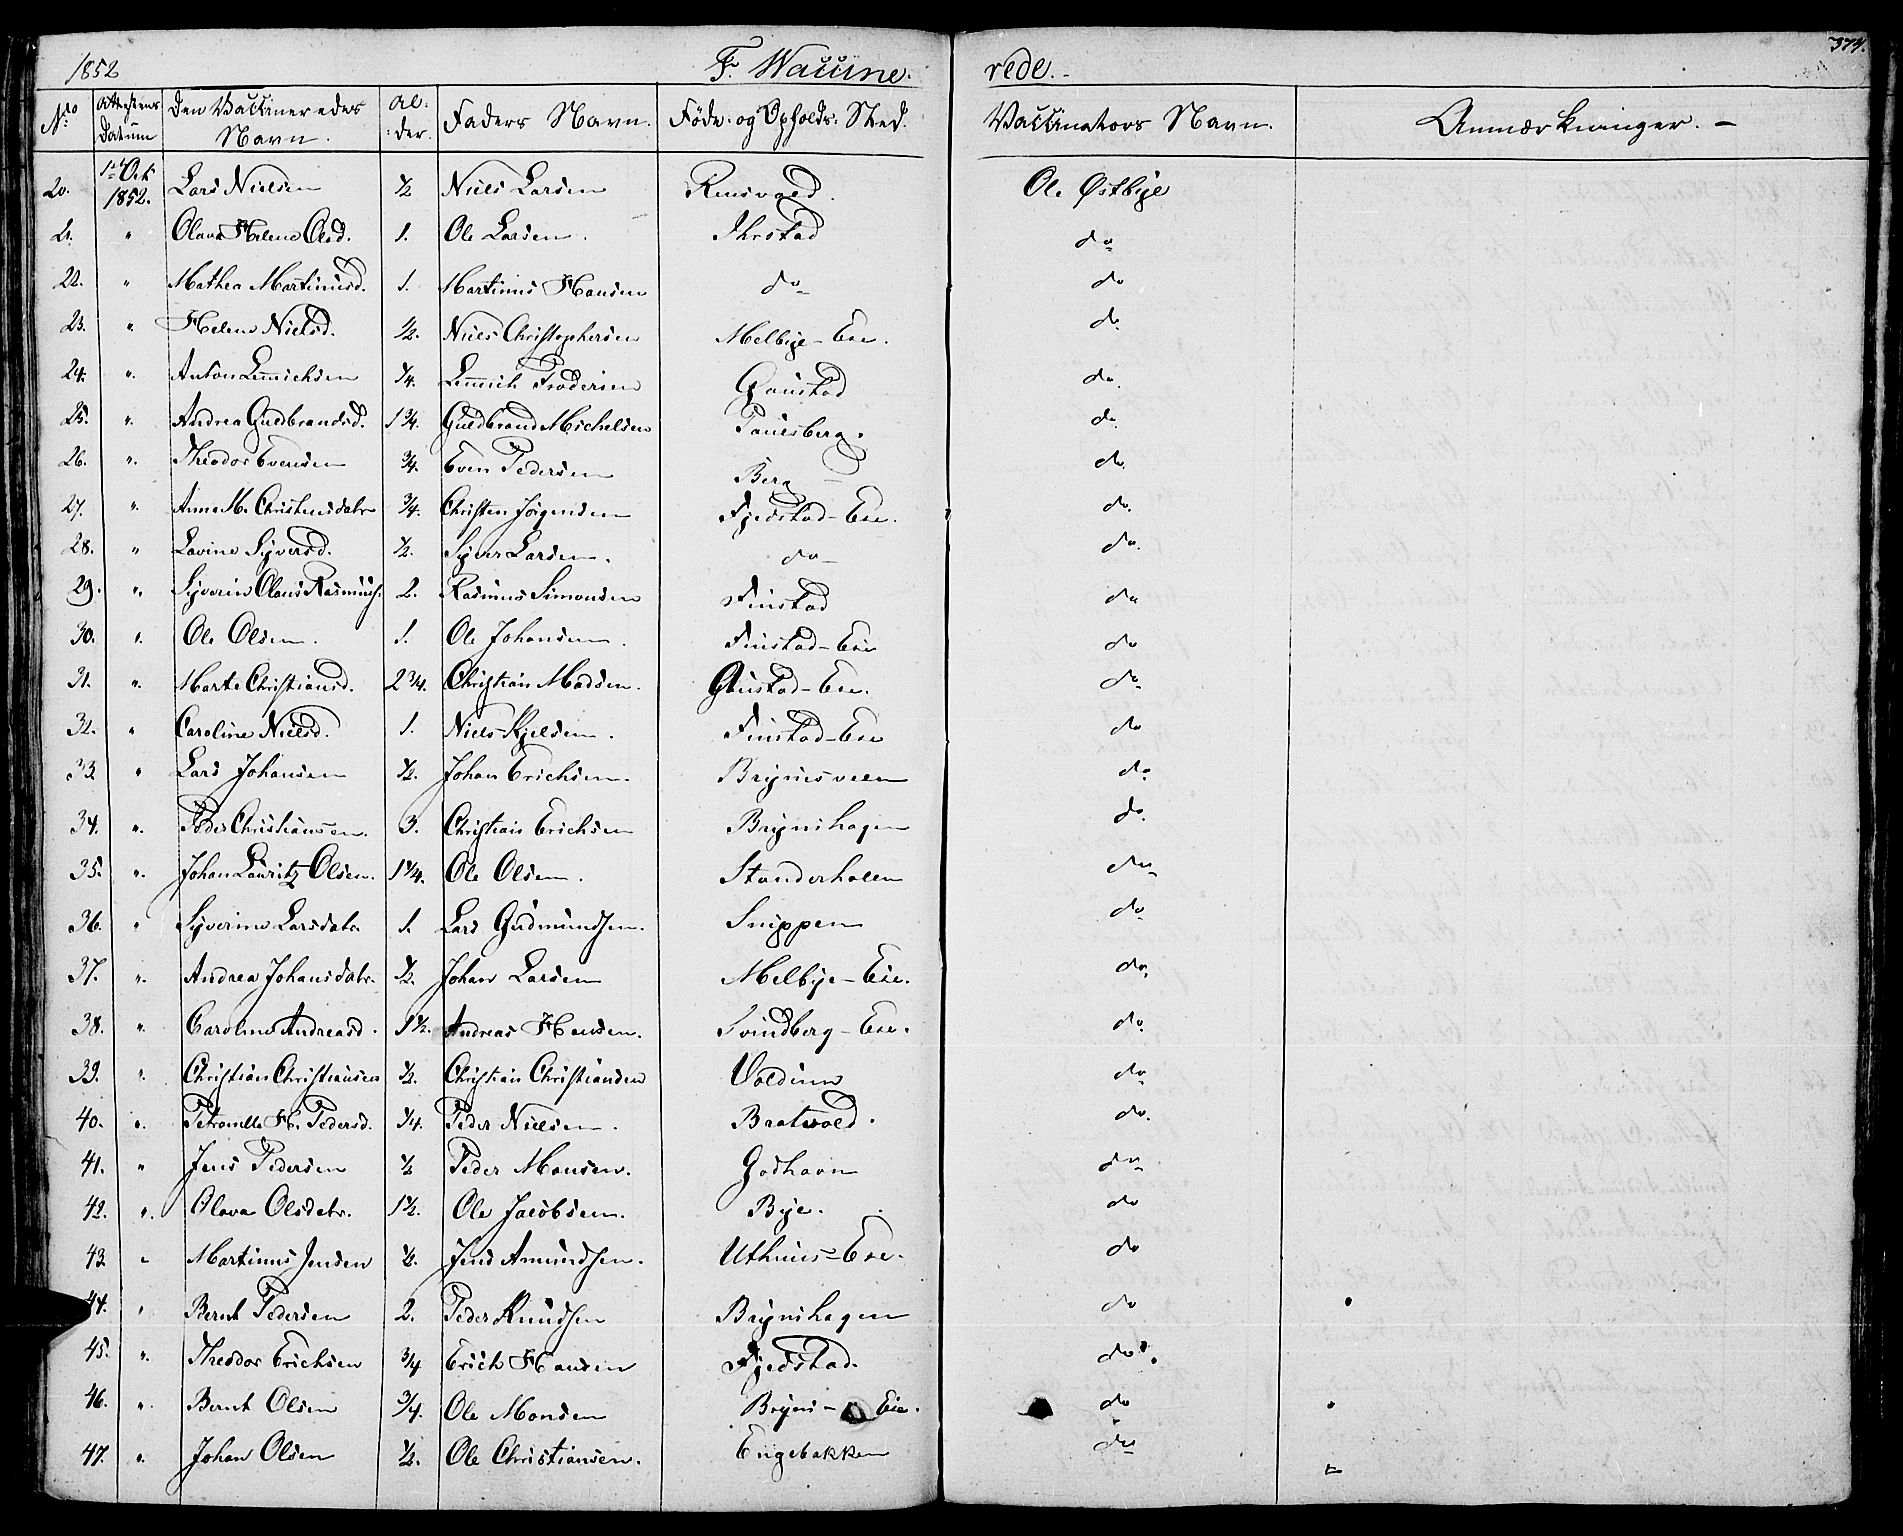 1852 F. Vaccine- rede.- 374.
No Attestens Datum Den Vaccineredes Navn. Al- der. Faders Navn. Føde- og Opholds-Sted. Vaccinators Navn. Anmærkninger. -
20. 1ste Oct 1852. Lars Nielsen 1/2 Niels Larsen Rensvold. Ol. Østbye
21. " Olava Helene Olsd. 1. Ole Larsen. Ihrstad do
22. " Mathea Martinusd. 1. Martinus Hansen do do
23. " Helene Nielsd. 1/2. Niels Christophersen Melbye-Eie. do
24. " Anton Lemichsen 1/4. Lemich Pedersen Gaustad do.
25. " Andrea Guldbrandsd. 1 3/4. Guldbrand Michelsen Pauesberg. do.
26. " Theodor Evensen 3/4. Even Pedersen Berg do.
27. " Anne M. Christensdatr 3/4. Christen Jörgensen Fjedstad-Eie. do.
28. " Lavine Syversd. 1/2. Syver Larsen. do do.
29. " Syverin Olaus Rasmuss. 2. Rasmus Simonsen Finstad do
30. " Ole Olsen. 1. Ole Johansen. Finstad-Eie do
31. " Marte Christiansd. 2 3/4. Christian Madsen. Gaustad-Eie. do
32. " Caroline Nielsd. 1. Niels Kjelsen. Finstad-Eie do
33. " Lars Johansen 1/2. Johan Erichsen. Brynisveen do
34. " Peder Christiansen. 3. Christian Erichsen Brynihagen do.
35. " Johan Lauritz Olsen. 1 1/4. Ole Olsen. Standerholen do
36. " Syverine Larsdatr. 1. Lars Gudmundsen. Snippen do
37. " Andrea Johansdatr. 1/2. Johan Larsen Melbye-Eie. do.
38. " Caroline Andreasd. 1 1/2. Andreas Hansen. Svindberg-Eie. do
39. " Christian Christiansen 1/2. Christian Christiansen Voldum do
40. " Petronelle H. Pedersd. 1/4. Peder Nielsen. Bratvold. do.
41. " Jens Pedersen 1/2 Peder Monsen. Godhavn do
42. " Olava Olsdatr. 1 1/2. Ole Jacobsen. Bye. do
43. " Martinus Jensen 1/2. Jens Amundsen. Uthuus-Eie. do
44. " Bernt Pedersen 2. Peder Knudsen Brynihagen do
45. " Theodor Erichsen 3/4 Erich Hansen Fjedstad. do
46. " Bernt Olsen 3/4. Ole Monsen Bryni- Eie. do
47. " Johan Olsen 1/2. Ole Christiansen. Engebakken do